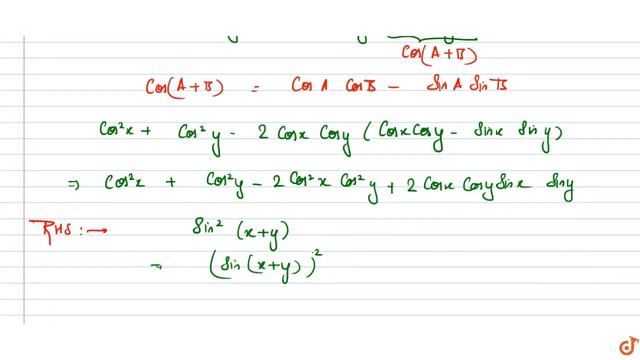 Cos(A+B)
Cos(A+B) = Cos A Cos B - Sin A Sin B
Cos²x + Cos²y - 2 Cosx Cosy (Cosx Cosy - Sinx Siny)
⇒ Cos²x + Cos²y - 2 Cos²x Cos²y + 2 Cosx Cosy Sinx Siny
RHS :→ Sin² (x+y)
= (Sin(x+y))²